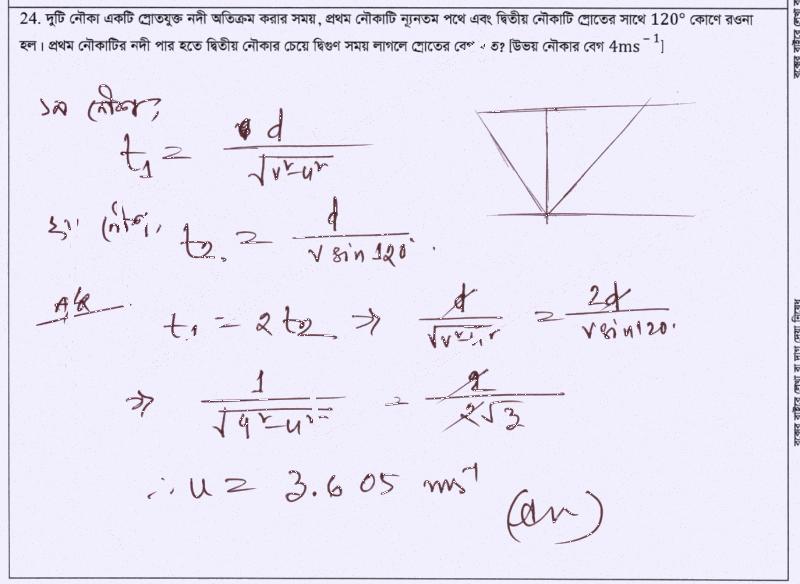 24. দুটি নৌকা একটি স্রোতযুক্ত নদী অতিক্রম করার সময়, প্রথম নৌকাটি ন্যূনতম পথে এবং দ্বিতীয় নৌকাটি স্রোতের সাথে 120° কোণে রওনা
হল। প্রথম নৌকাটির নদী পার হতে দ্বিতীয় নৌকার চেয়ে দ্বিগুণ সময় লাগলে স্রোতের বেগ ত? [উভয় নৌকার বেগ 4ms⁻¹]
১ম নৌকা,
t₁ = d / √(v²-u²)
২য় নৌকা, t₂ = d / v sin 120°
A/Q
t₁ = 2 t₂ ⇒ d / √(v²-u²) = 2d / v sin 120°
⇒ 1 / √(4²-u²) = 2 / 2√3
∴ u = 3.605 ms⁻¹
(An)